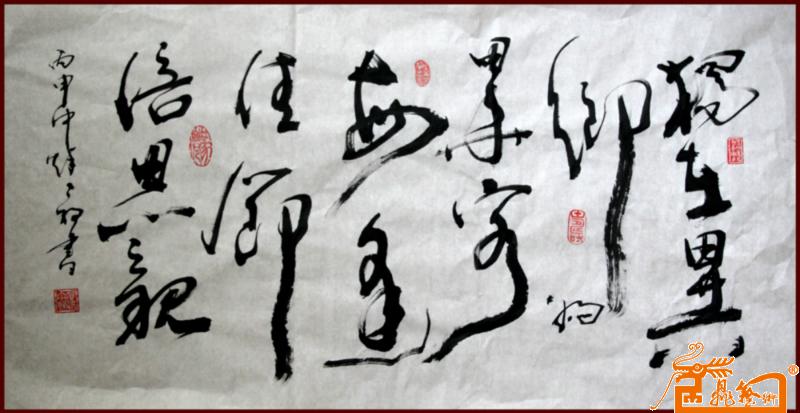 獨在異
鄉為
異客
每逢
佳節
倍思親
丙申仲秋之初書